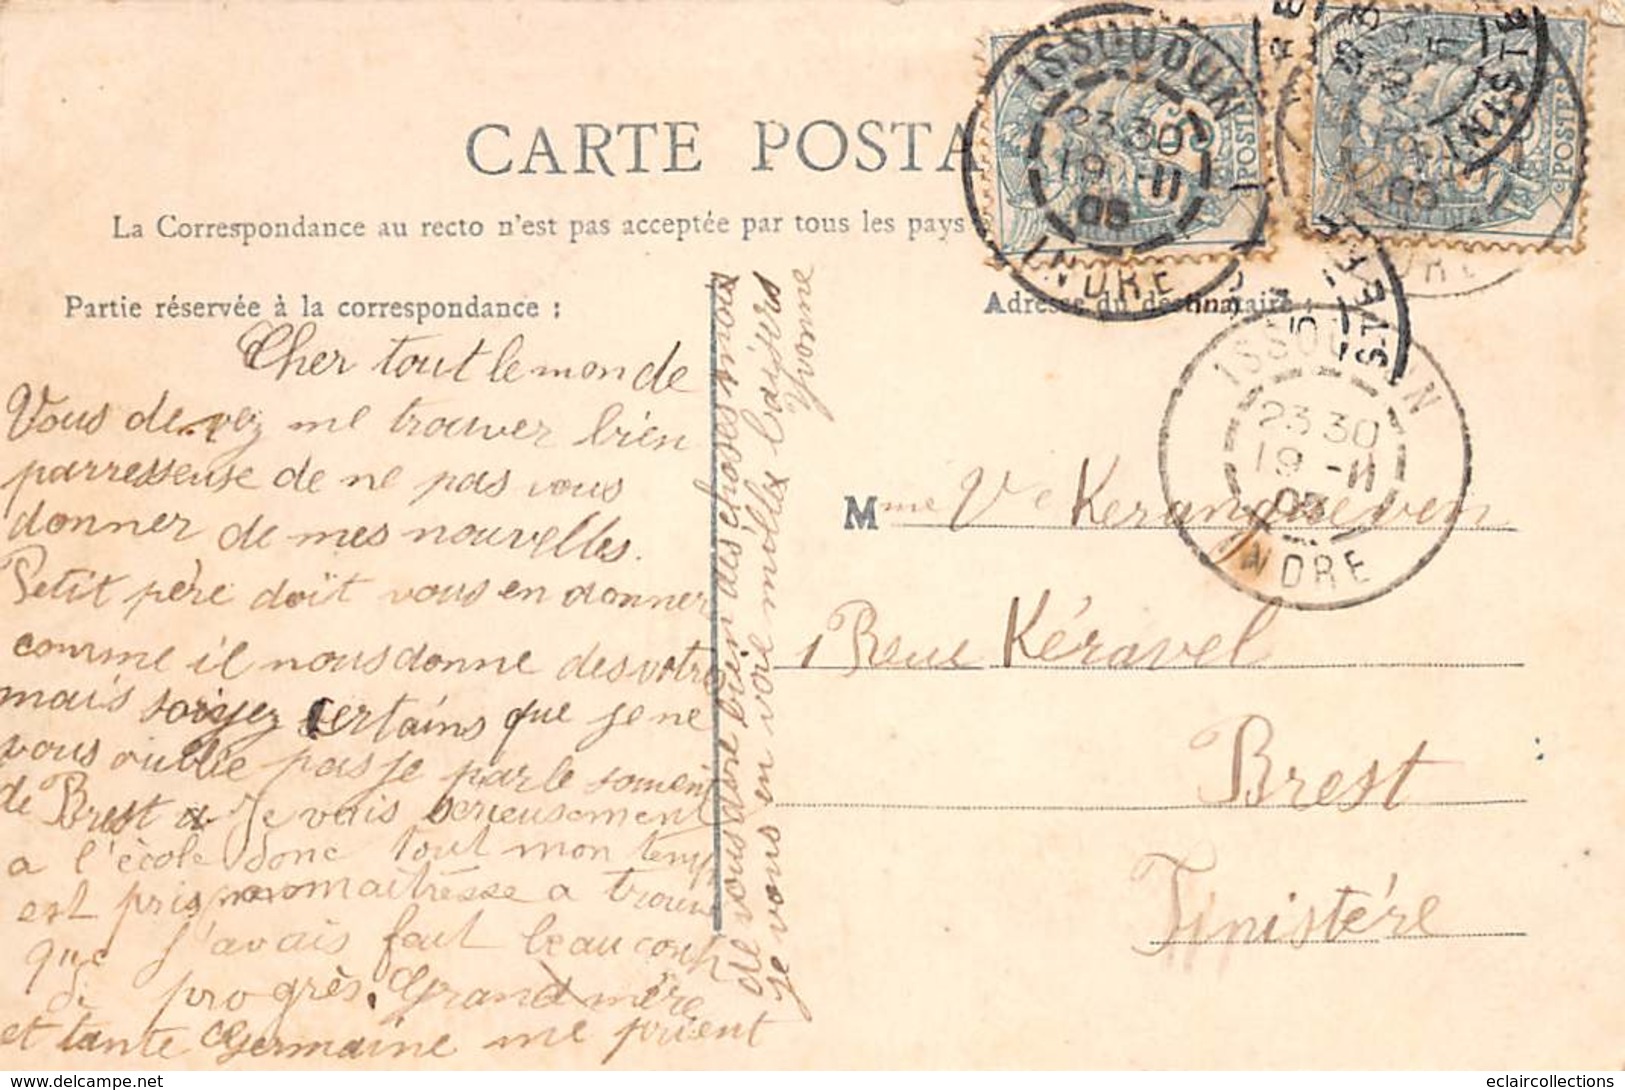 CARTE POSTA
La Correspondance au recto n'est pas acceptée par tous les pays
Partie réservée à la correspondance :
Adresse du destinataire :
ISSOUDUN
23 30
19 -11
05
INDRE
POSTES
POSTES
FINISTERE
ISSOUDUN
23 30
19 -11
05
INDRE
Cher tout le monde
Vous devez me trouver bien
parresseuse de ne pas vous
donner de mes nouvelles.
Petit père doit vous en donner
comme il nous donne des votres
mais soiyez certains que je ne
vous oublie pas je parle souvent
de Brest Je vais serieusement
a l'école donc tout mon temps
est pris ma maitresse a trouvé
que j'avais fait beaucoup
de progrès. Grand mère
et tante Germaine me prient
de vous dire bien des choses mois
je vous envoie milles baisers
Yvonne
Mme Ve Keranqueven
1 Rue Kéravel
Brest
Finistère
eclaircollections